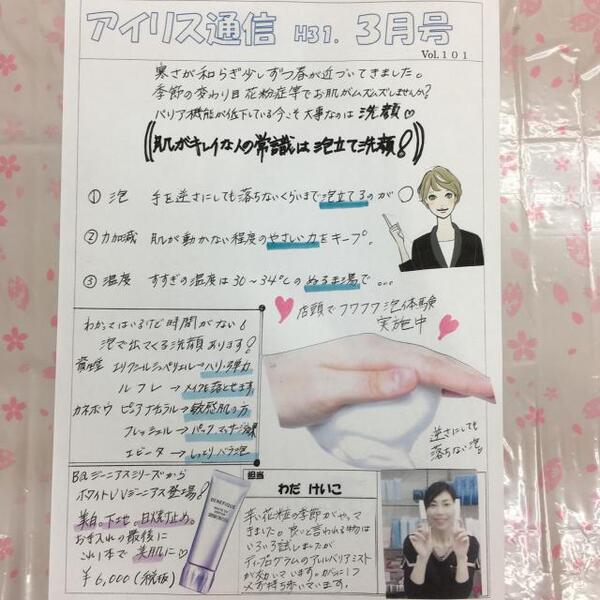 アイリス通信 H31. 3月号
Vol.101
寒さが和らぎ少しずつ春が近づいてきました。
季節の変わり目花粉症等でお肌がムズムズしませんか?
バリア機能が低下している今こそ大事なのは洗顔♡
((肌がキレイな人の常識は泡立て洗顔!))
① 泡 手を逆さにしても落ちないくらいまで泡立てるのが○
② 力加減 肌が動かない程度のやさしい力をキープ。
③ 温度 すすぎの温度は30~34℃のぬるま湯で…
店頭でフワフワ泡体験
実施中
わかってはいるけど時間がない!
泡で出てくる洗顔あります!
資生堂 エリクシールシュペリエル→ハリ・弾力
ルフレ→メイクも落とせます
カネボウ ピュアナチュラル→敏感肌の方
フレッシェル→パック、マッサージ効果
エビータ→しっとりバラ泡
逆さにしても
落ちない泡。
BAジーニアスシリーズから
ホワイトUVジーニアス登場!
美白。下地。日焼け止め。
お手入れの最後に
これ1本で美肌に♡
¥6,000(税抜)
BENEFIQUE
担当
わだ けいこ
辛い花粉の季節がやって
きました。良いと言われる物は
いろいろ試しましたが
ディープログラムのアレルバリアミスト
が効いています。カバンに1つ
入れ持ち歩いています。